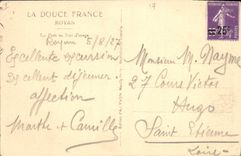 LA DOUCE FRANCE
ROYAN
Royan 5/8/27
Excellente excursion
Excellent déjeuner
affection
Marthe + Camille
Monsieur M. Nayme
27 Cours Victor
Hugo
Saint Etienne
Loire
25